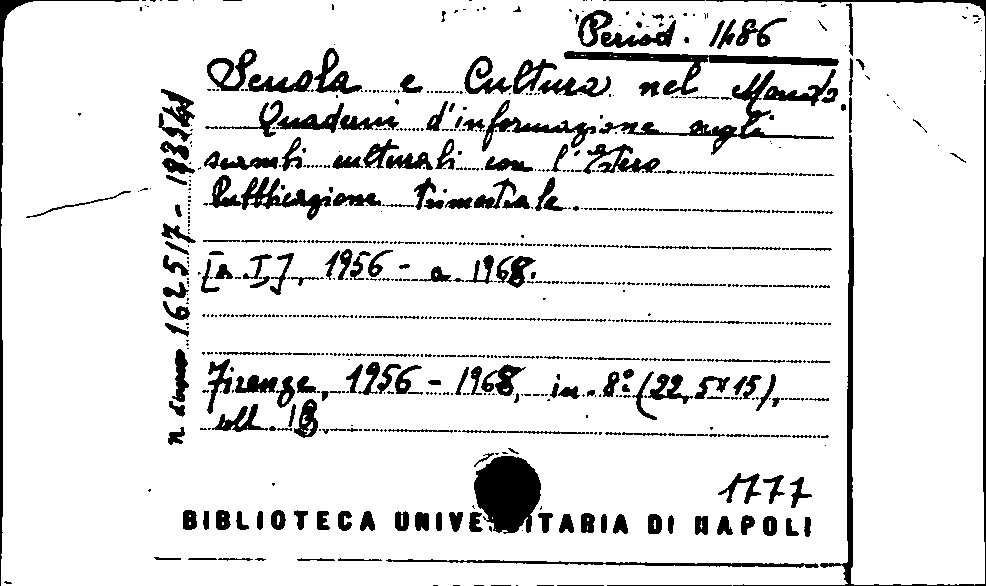 Period. 1486
Scuola e Cultura nel Mondo.
Quaderni d'informazione sugli
scambi culturali con l'Estero.
Pubblicazione Trimestrale.
[a. I], 1956 - a. 1968.
Firenze, 1956 - 1968, in-8° (22,5x15),
voll. 13.
n. d'ingresso 162517 -
1777
BIBLIOTECA UNIVERSITARIA DI NAPOLI